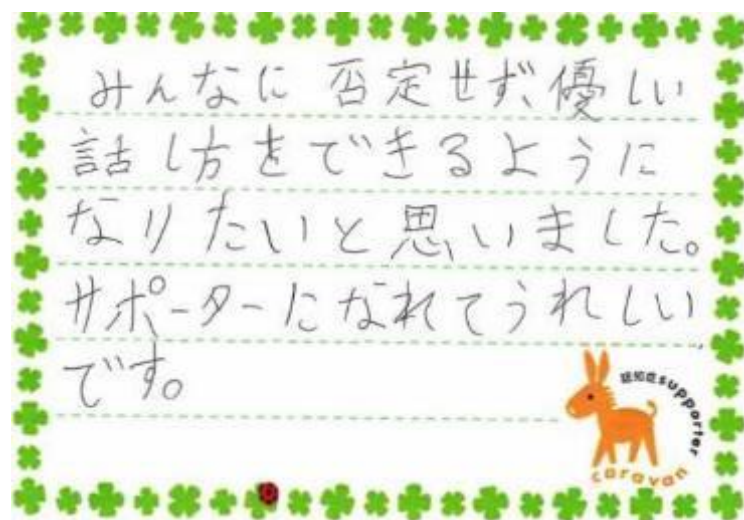 みんなに 否定せず、優しい
話し方をできるように
なりたいと思いました。
サポーターになれてうれしい
です。
認知症supporter
caravan